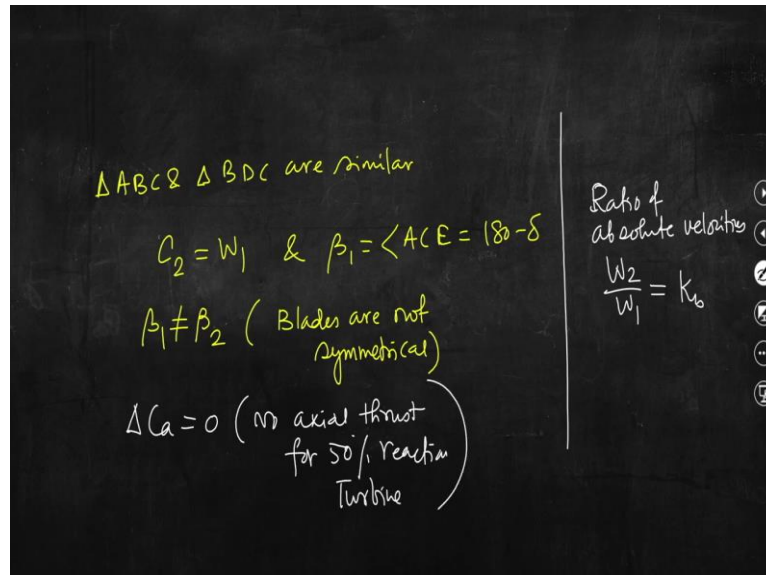 Δ ABC & Δ BDC are similar
C₂ = W₁ & β₁ = <ACE = 180-δ
β₁ ≠ β₂ ( Blades are not
symmetrical)
Δ Ca = 0 ( no axial thrust
for 50% reaction
Turbine )
Ratio of
absolute velocities
W₂/W₁ = K_b